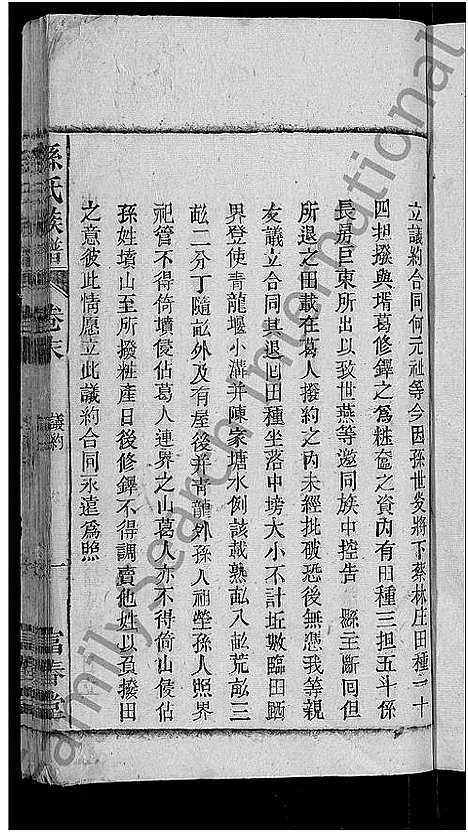 立議約合同何元祉等今因孫世炎將下蔡林庄田種二十
四担撥與壻葛修鐸之爲粧奩之資內有田種三担五斗係
長房巨東所出以致世燕等邀同族中控告 縣主斷囘但
所退之田載在葛人撥約之內未經批破恐後無憑我等親
友議立合同其退囘田種坐落中塝大小不計坵數臨田踩
界登使青龍堰小溝并陳家塘水例該載熟畝八畝荒畝三
畝二分丁隨畝外及有屋後并青龍外孫人祖塋孫人照界
祀管不得倚墳侵佔葛人連界之山葛人亦不得倚山侵佔
孫姓墳山至所撥粧產日後修鐸不得調賣他姓以負撥田
之意彼此情愿立此議約合同永遠爲照
孫氏族譜 卷末 議約 一 富春堂
FamilySearch International